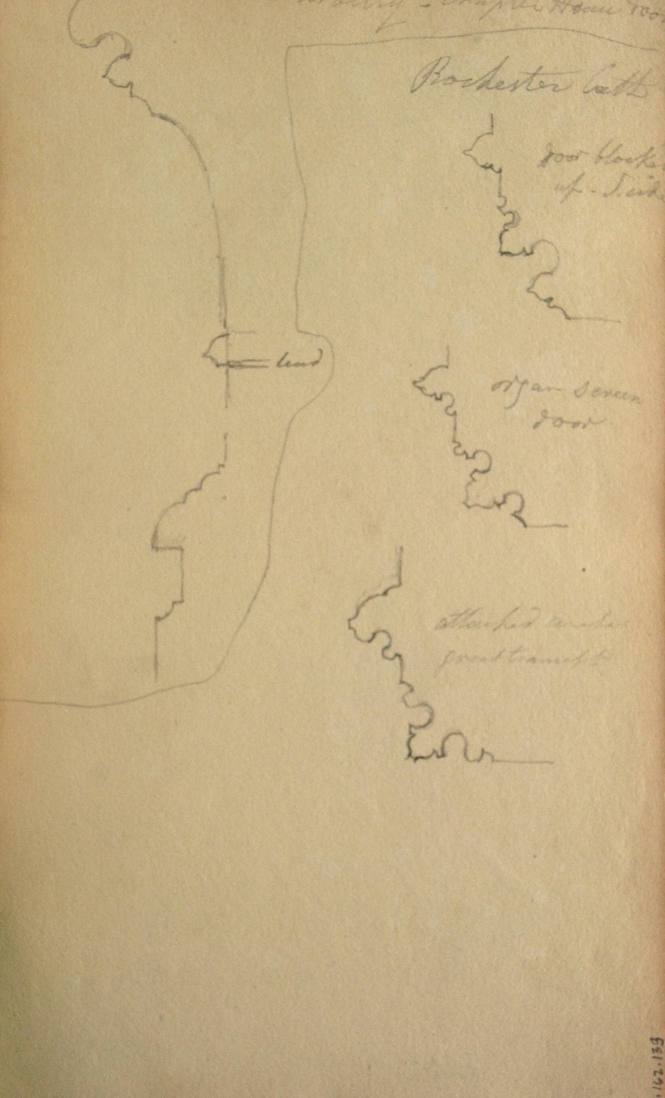 Chapter House
Rochester Cath
door blocke
up - S.
organ screen
door
lead
attached
great transept
.162.133